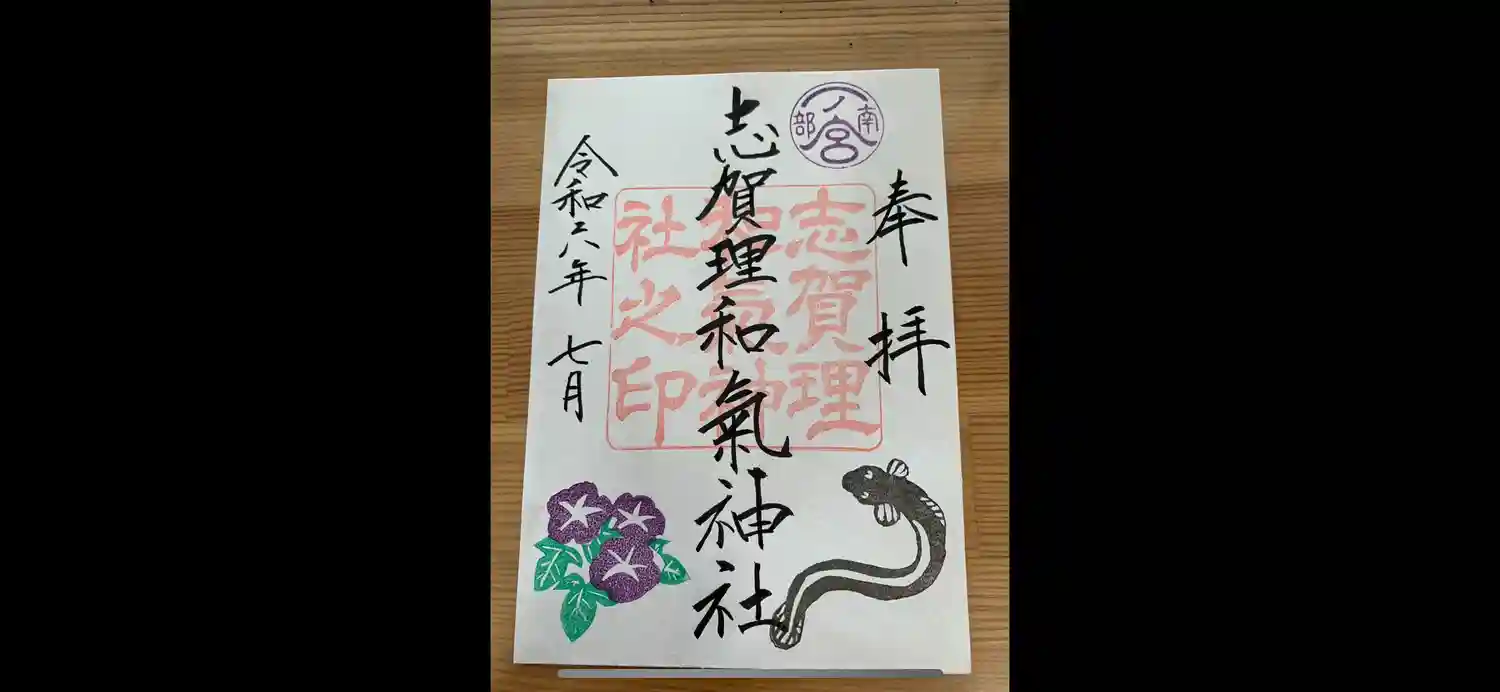 奉拝
南部
一ノ宮
志賀理和氣神社
志賀理
和氣神
社之印
令和六年 七月